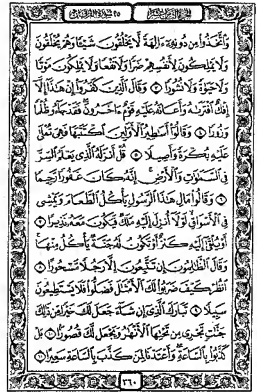 ٢٥ سورة الفرقان
وَٱتَّخَذُوا۟ مِن دُونِهِۦٓ ءَالِهَةً لَّا يَخْلُقُونَ شَيْـًٔا وَهُمْ يُخْلَقُونَ
وَلَا يَمْلِكُونَ لِأَنفُسِهِمْ ضَرًّا وَلَا نَفْعًا وَلَا يَمْلِكُونَ مَوْتًا
وَلَا حَيَوٰةً وَلَا نُشُورًا ٣ وَقَالَ ٱلَّذِينَ كَفَرُوٓا۟ إِنْ هَٰذَآ إِلَّآ
إِفْكٌ ٱفْتَرَىٰهُ وَأَعَانَهُۥ عَلَيْهِ قَوْمٌ ءَاخَرُونَ فَقَدْ جَآءُو ظُلْمًا
وَزُورًا ٤ وَقَالُوٓا۟ أَسَٰطِيرُ ٱلْأَوَّلِينَ ٱكْتَتَبَهَا فَهِىَ تُمْلَىٰ
عَلَيْهِ بُكْرَةً وَأَصِيلًا ٥ قُلْ أَنزَلَهُ ٱلَّذِى يَعْلَمُ ٱلسِّرَّ
فِى ٱلسَّمَٰوَٰتِ وَٱلْأَرْضِ إِنَّهُۥ كَانَ غَفُورًا رَّحِيمًا
٦ وَقَالُوا۟ مَالِ هَٰذَا ٱلرَّسُولِ يَأْكُلُ ٱلطَّعَامَ وَيَمْشِى
فِى ٱلْأَسْوَاقِ لَوْلَآ أُنزِلَ إِلَيْهِ مَلَكٌ فَيَكُونَ مَعَهُۥ نَذِيرًا ٧
أَوْ يُلْقَىٰٓ إِلَيْهِ كَنزٌ أَوْ تَكُونُ لَهُۥ جَنَّةٌ يَأْكُلُ مِنْهَا
وَقَالَ ٱلظَّٰلِمُونَ إِن تَتَّبِعُونَ إِلَّا رَجُلًا مَّسْحُورًا ٨
ٱنظُرْ كَيْفَ ضَرَبُوا۟ لَكَ ٱلْأَمْثَٰلَ فَضَلُّوا۟ فَلَا يَسْتَطِيعُونَ
سَبِيلًا ٩ تَبَارَكَ ٱلَّذِىٓ إِن شَآءَ جَعَلَ لَكَ خَيْرًا مِّن ذَٰلِكَ
جَنَّٰتٍ تَجْرِى مِن تَحْتِهَا ٱلْأَنْهَٰرُ وَيَجْعَل لَّكَ قُصُورًا ١٠ بَلْ
كَذَّبُوا۟ بِٱلسَّاعَةِ وَأَعْتَدْنَا لِمَن كَذَّبَ بِٱلسَّاعَةِ سَعِيرًا ١١
٣٦٠